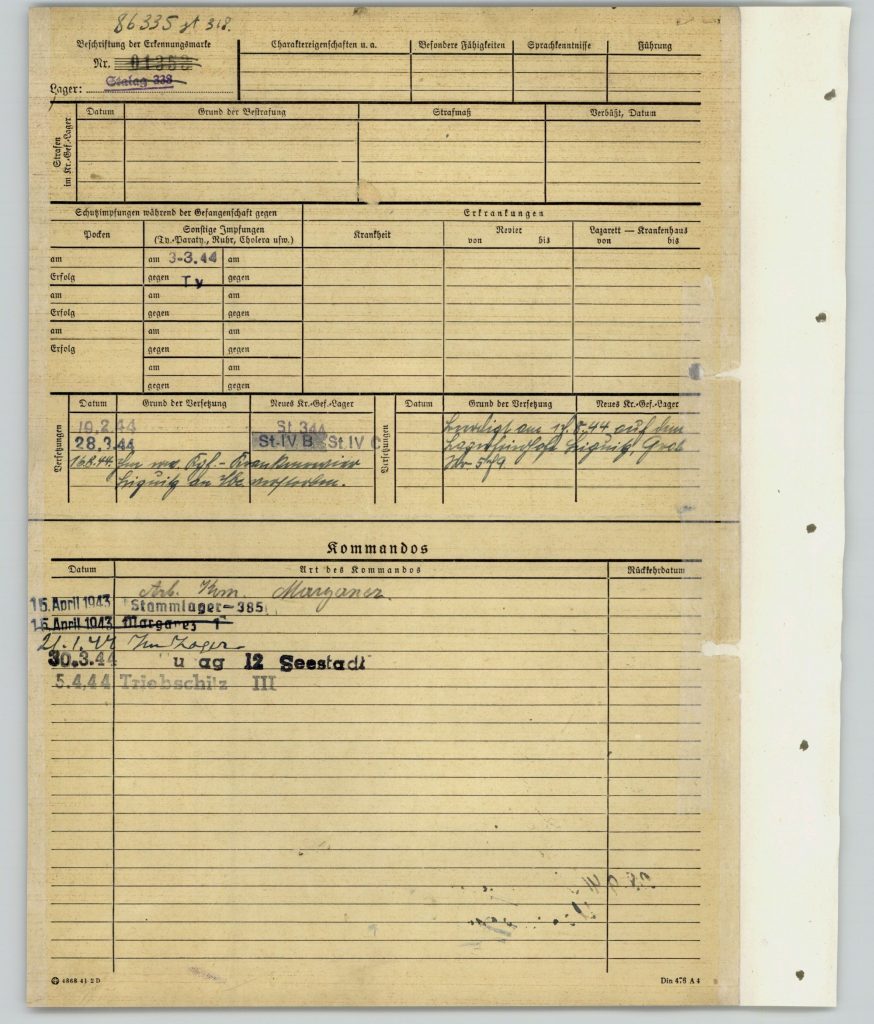 86335 zt 318.
Beschriftung der Erkennungsmarke
Nr. 01353
Lager: Stalag 338
Charaktereigenschaften u. a.
Besondere Fähigkeiten
Sprachkenntnisse
Führung
Strafen im Kr.-Gef.-Lager
Datum
Grund der Bestrafung
Strafmaß
Verbüßt, Datum
Schutzimpfungen während der Gefangenschaft gegen
Erkrankungen
Pocken
Sonstige Impfungen
(Ty.-Paraty., Ruhr, Cholera usw.)
Krankheit
Revier
von bis
Lazarett — Krankenhaus
von bis
am am 3-3.44 am
Erfolg gegen Ty gegen
am am am
Erfolg gegen gegen
am am am
Erfolg gegen gegen
am am
gegen gegen
Versetzungen
Datum Grund der Versetzung Neues Kr.-Gef.-Lager
19.2.44 St 344
28.3.44 St-IV B St IV C
16.8.44 Im Kgf.-Krankenrevier
an verstorben.
Versetzungen
Datum Grund der Versetzung Neues Kr.-Gef.-Lager
Beerdigt am 17.8.44 auf dem
Lagerfriedhofe Grab
Nr 579
Kommandos
Datum Art des Kommandos Rückkehrdatum
Arb. Km. Marganez
15. April 1943 Stammlager-385
15. April 1943 Marganez 1
21.1.44 Im Lager
30.3.44 u ag 12 Seestadt
5.4.44 Triebschitz III
4868 41 2 D
Din 476 A 4